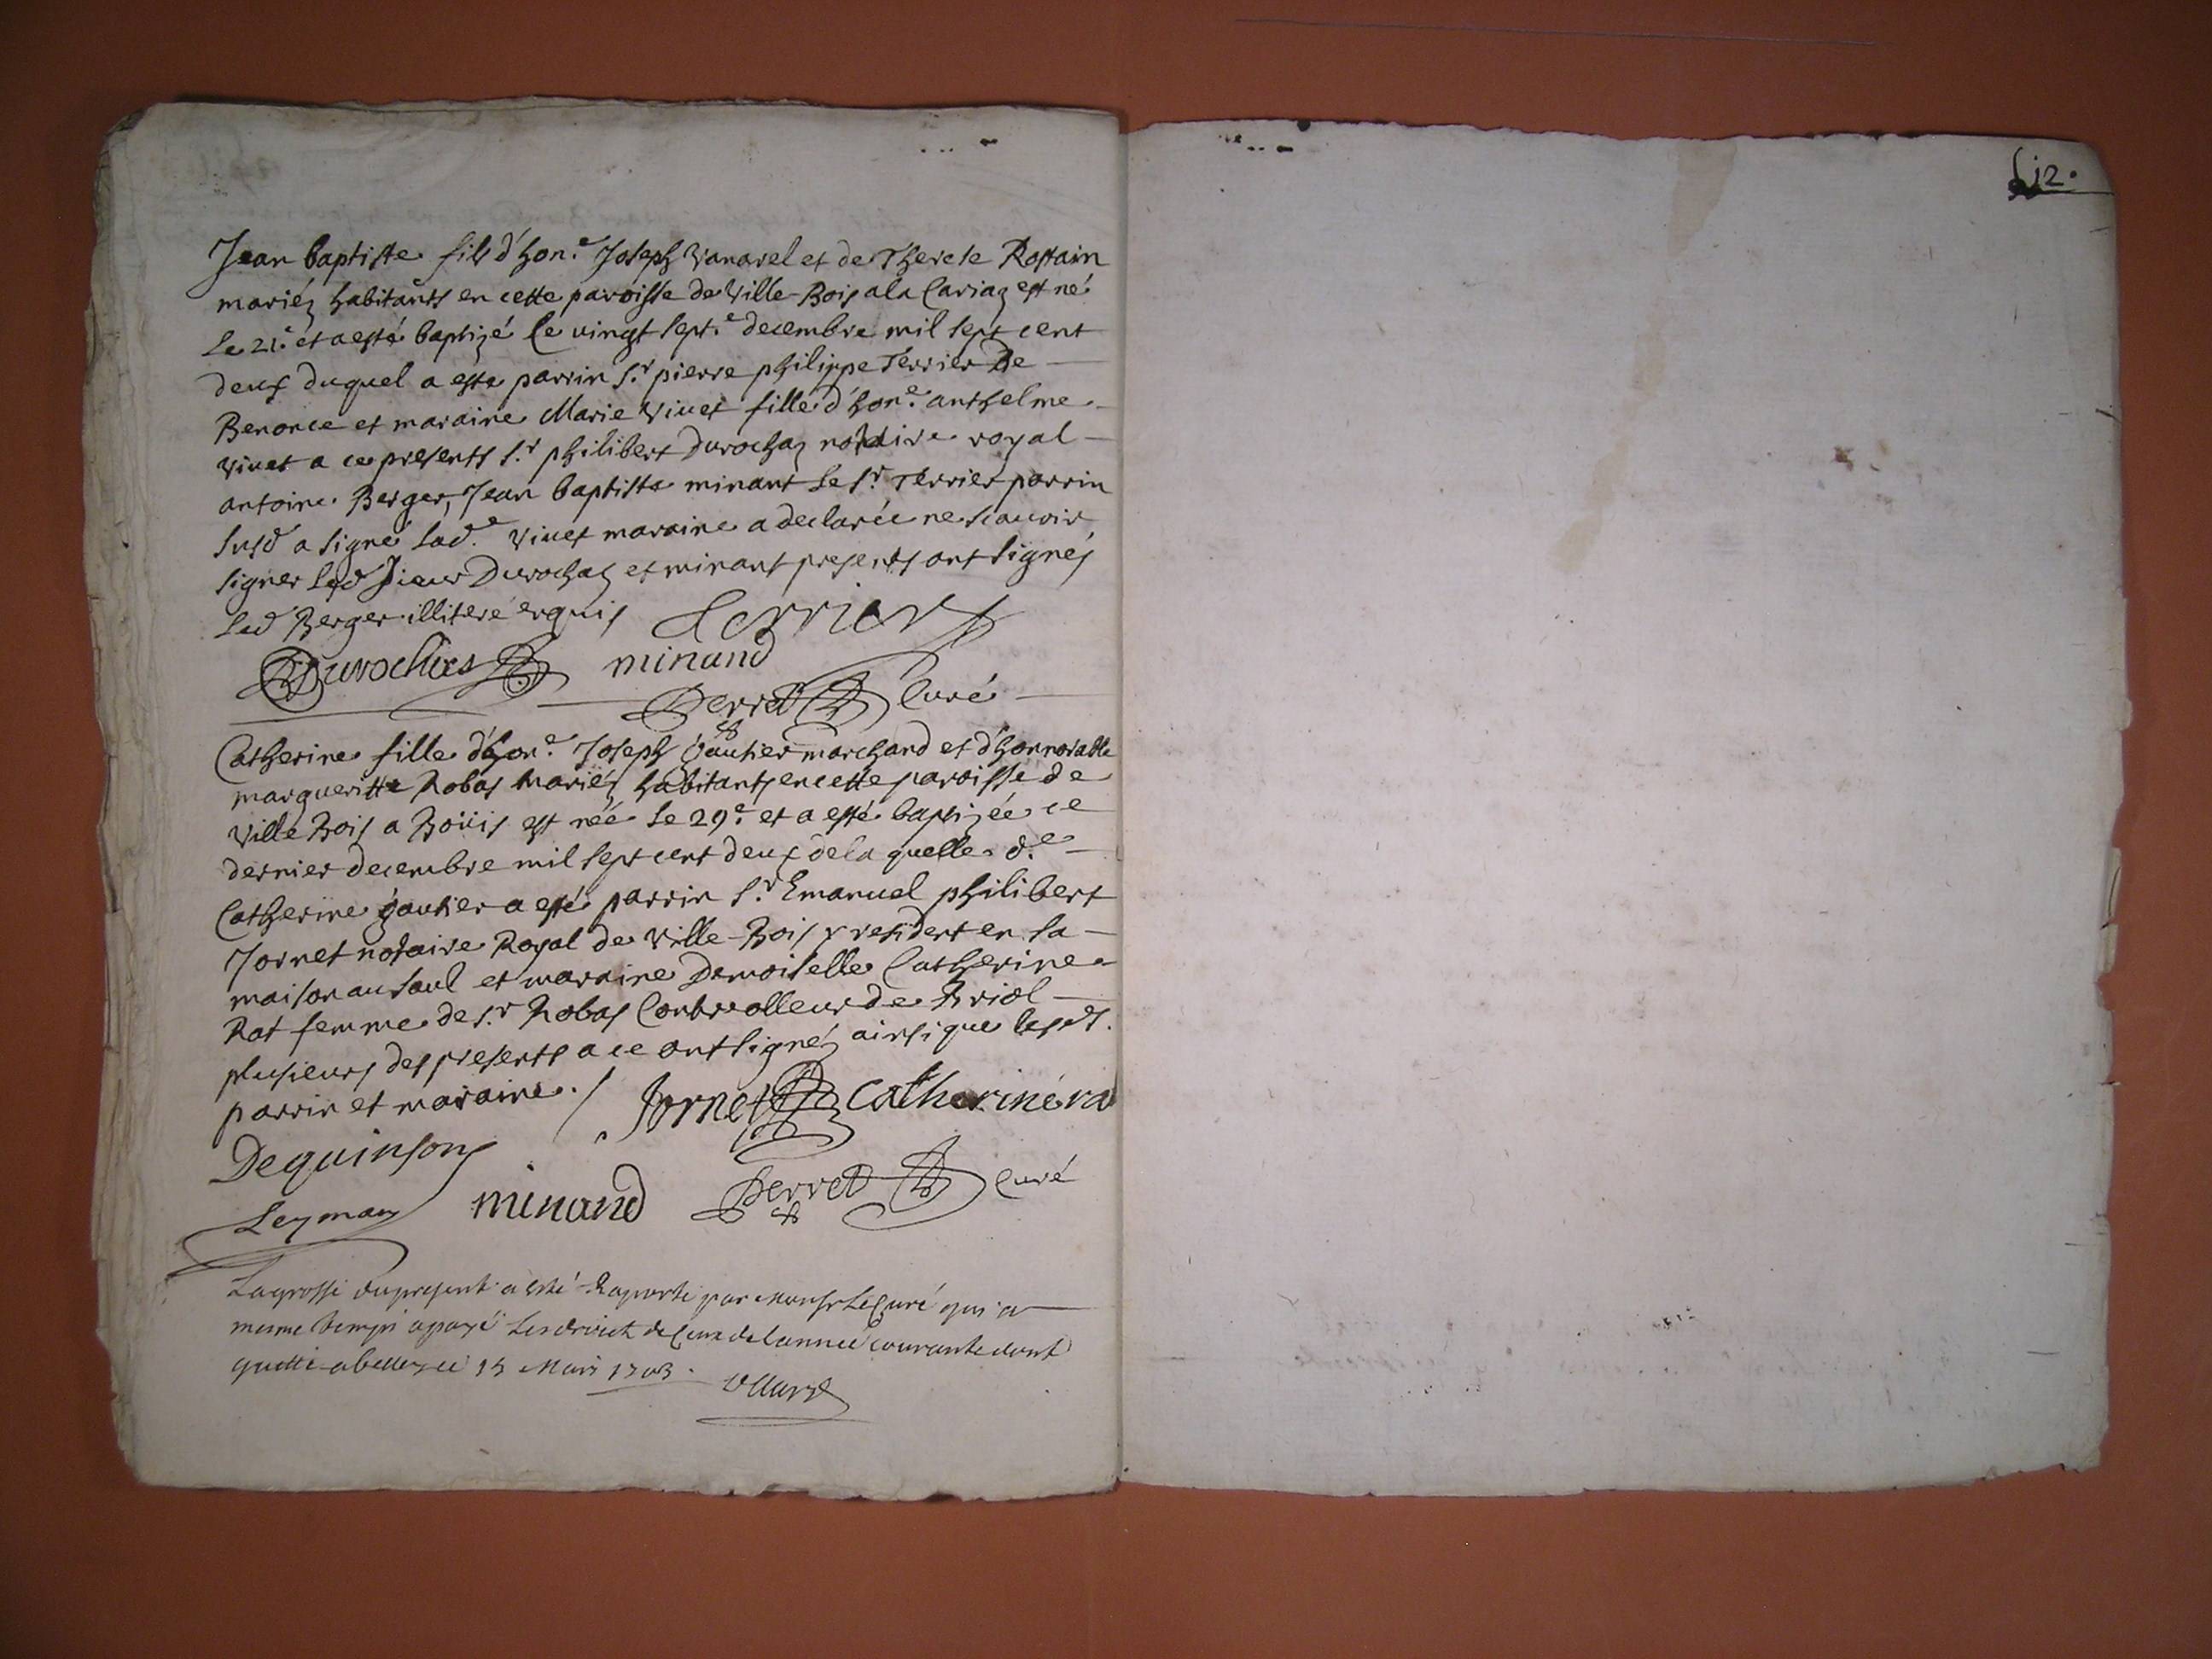 Jean baptiste fils d'hon.e Joseph Vanarel et de Therese Rostain
mariéz habitants en cette paroisse de Ville-Bois a la Cariaz est né
le 21.e et a esté baptizé le vingt sept.e decembre mil sept cent
deux duquel a esté parrin s.r pierre philippe Terrier De
Benonce et maraine Marie Vivet fille d'hon.e anthelme
Vivet a ce presents s.r philibert Durochaz notaire royal
antoine Berger, Jean baptiste minant le s.r Terrier parrin
susd a signé lad.e Vivet maraine a declarée ne scavoir
signer led sieur Durochaz et minant presents ont signés
led Berger illiteré enquis Terrier
Durochas minand
Perret Curé
Catherine fille d'hon.e Joseph gautier marchand et d'honnorable
margueritte Robas mariéz habitants en cette paroisse de
Ville Bois a Boüis est néé le 29.e et a esté baptizée ce
dernier decembre mil sept cent deux de la quelle d.e
Catherine gautier a esté parrin s.r Emanuel philibert
Jornet notaire Royal de Ville-Bois y resident en sa
maison au saul et maraine Demoiselle Catherine
Rat femme de s.r Robas Controolleur de Briol
plusieurs des presents a ce ont signéz ainsi que lesds.
parrin et maraine. / Jornet Catherine ra
Dequinson
Leyman minand Perret Curé
La grosse du present a esté Raporté par Monsr le Curé qui a
mesme temps a payé les droict de ceux de l'année courante dont
quitte a belley ce 15 Mars 1703.
12.